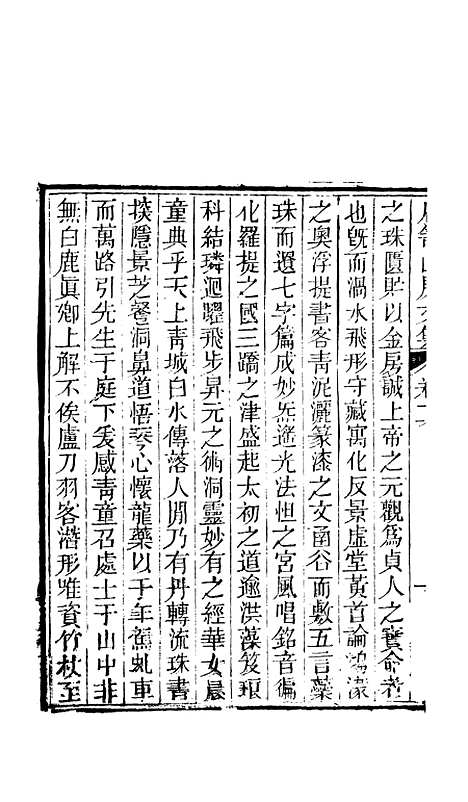 之珠匱貯以金房誠上帝之元觀爲貞人之寶命者
也旣而渦水飛形守藏寓化反景虛堂黃首論鴻濛
之奧浮提書客靑泥灑篆漆之文函谷而敷五言藥
珠而還七字篇成妙炁遙光法怛之宮風唱銘音徧
化羅提之國三蹻之津盛起太初之道逾洪藻笈琅
科結璘迴躍飛步昇元之術洞靈妙有之經華女晨
童典乎天上靑城白水傳落人閒乃有丹轉流珠書
掞隱景芝馨洞鼻道悟琴心懷龍藥以千年蕉虬車
而萬路引先生于庭下爰感靑童召處士于山中非
無白鹿眞鄉上解不俟廬刀羽客潛形唯資竹杖至